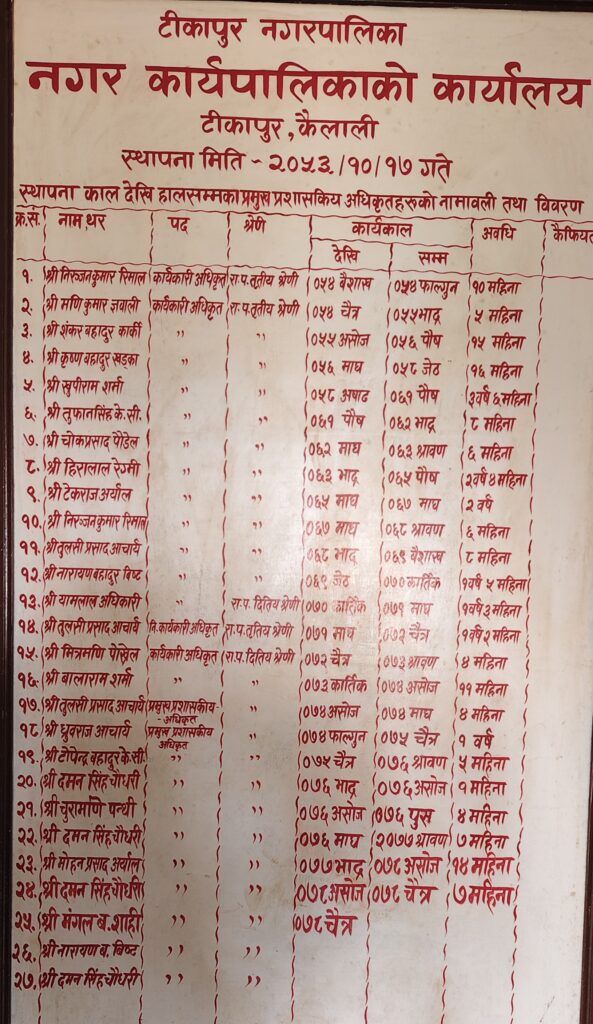 टीकापुर नगरपालिका
नगर कार्यपालिकाको कार्यालय
टीकापुर, कैलाली
स्थापना मिति - २०५३/१०/१७ गते
स्थापना काल देखि हालसम्मका प्रमुख प्रशासकिय अधिकृतहरुको नामावली तथा विवरण
क्र.सं. नाम,थर पद श्रेणी कार्यकाल अवधि कैफियत
देखि सम्म
१. श्री निरञ्जनकुमार रिमाल कार्यकारी अधिकृत रा.प.तृतीय श्रेणी ०५४ बैशाख ०५४ फाल्गुन १० महिना
२. श्री मणि कुमार ज्ञवाली कार्यकारी अधिकृत रा.प.तृतीय श्रेणी ०५४ चैत्र ०५५ भाद्र ५ महिना
३. श्री शंकर बहादुर कार्की ,, ,, ०५५ असोज ०५६ पौष १५ महिना
४. श्री कृष्ण बहादुर खड्का ,, ,, ०५६ माघ ०५८ जेठ १६ महिना
५. श्री खुपीराम शर्मा ,, ,, ०५८ अषाढ ०६१ पौष ३वर्ष ६ महिना
६. श्री तुफानसिंह के.सी. ,, ,, ०६१ पौष ०६२ भाद्र ८ महिना
७. श्री चोकप्रसाद पौडेल ,, ,, ०६२ माघ ०६३ श्रावण ६ महिना
८. श्री हिरालाल रेग्मी ,, ,, ०६३ भाद्र ०६५ पौष २वर्ष ४ महिना
९. श्री टेकराज अर्याल ,, ,, ०६५ माघ ०६७ माघ २ वर्ष
१०. श्री निरञ्जनकुमार रिमाल ,, ,, ०६७ माघ ०६८ श्रावण ६ महिना
११. श्री तुलसी प्रसाद आचार्य ,, ,, ०६८ भाद्र ०६९ बैशाख ८ महिना
१२. श्री नारायण बहादुर बिष्ट ,, ,, ०६९ जेठ ०७० कार्तिक १वर्ष ५ महिना
१३. श्री यामलाल अधिकारी ,, रा.प. दितिय श्रेणी ०७० कार्तिक ०७१ माघ १वर्ष ३ महिना
१४. श्री तुलसी प्रसाद आचार्य नि.कार्यकारी अधिकृत रा.प.तृतिय श्रेणी ०७१ माघ ०७२ चैत्र १वर्ष २ महिना
१५. श्री मित्रमणि कार्यकारी अधिकृत रा.प.दितिय श्रेणी ०७२ चैत्र ०७३ श्रावण ४ महिना
१६. श्री बालाराम शर्मा ,, ,, ०७३ कार्तिक ०७४ असोज ११ महिना
१७. श्री तुलसी प्रसाद आचार्य प्रमुख प्रशासकीय - अधिकृत ,, ०७४ असोज ०७४ माघ ४ महिना
१८ श्री ध्रुवराज आचार्य प्रमुख प्रशासकीय अधिकृत ,, ०७४ फाल्गुन ०७५ चैत्र १ वर्ष
१९. श्री टोपेन्द्र बहादुर के.सी ,, ,, ०७५ चैत्र ०७६ श्रावण ५ महिना
२०. श्री दमन सिंह चौधरी ,, ,, ०७६ भाद्र ०७६ असोज १ महिना
२१. श्री चुरामणि पन्थी ,, ,, ०७६ असोज ०७६ पुस ४ महिना
२२. श्री दमन सिंह चौधरी ,, ,, ०७६ माघ २०७७ श्रावण ७ महिना
२३. श्री मोहन प्रसाद अर्याल ,, ,, ०७७ भाद्र ०७८ असोज १४ महिना
२४. श्री दमन सिंह चौधरी ,, ,, ०७८ असोज ०७८ चैत्र ७ महिना
२५. श्री मंगल ब. शाही ,, ,, ०७८ चैत्र
२६. श्री नारायण ब. बिष्ट ,, ,,
२७. श्री दमन सिंह चौधरी ,, ,,